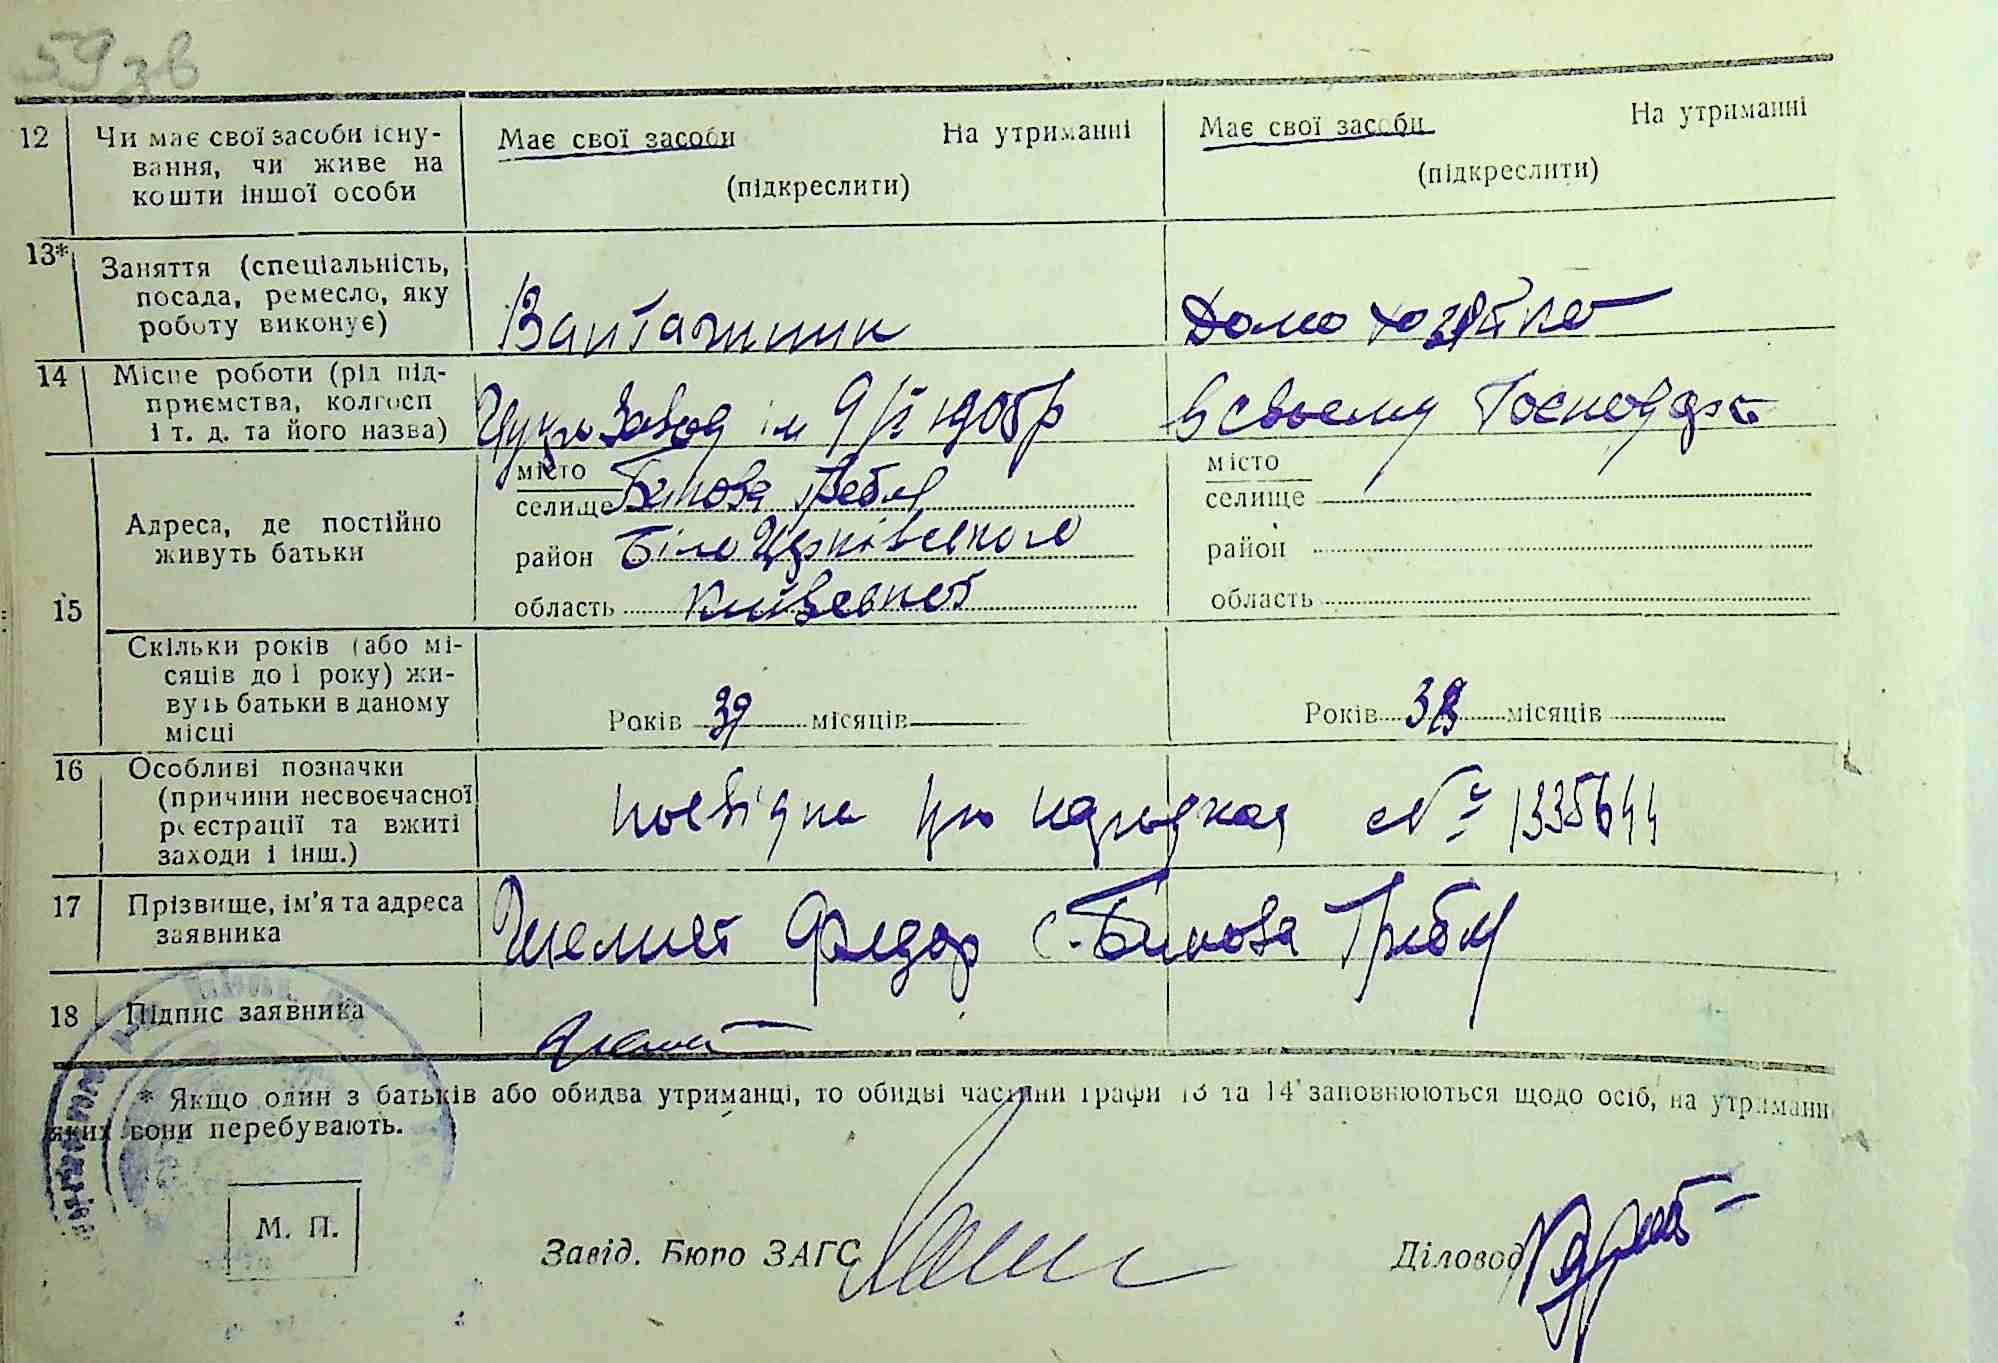 59 зв
12 Чи має свої засоби існу-
вання, чи живе на
кошти іншої особи
Має свої засоби На утриманні
(підкреслити)
Має свої засоби На утриманні
(підкреслити)
13* Заняття (спеціальність,
посада, ремесло, яку
роботу виконує)
Вантажник
Домохозяйка
14 Місце роботи (рід під-
приємства, колгосп
і т. д. та його назва)
Цукрозавод ім 9/І
в своєму
15 Адреса, де постійно
живуть батьки
місто
селище Бикова Гребля
район Білоцерківського
область Київської
місто
селище
район
область
Скільки років (або мі-
сяців до 1 року) жи-
вуть батьки в даному
місці
Років 39 місяців
Років 38 місяців
16 Особливі позначки
(причини несвоєчасної
реєстрації та вжиті
заходи і інш.)
посвідка про №
17 Прізвище, ім'я та адреса
заявника
Федор с. Бикова Гребля
18 Підпис заявника
* Якщо один з батьків або обидва утриманці, то обидві частини графи 13 та 14 заповнюються щодо осіб, на утриманні
яких вони перебувають.
М. П.
Завід. Бюро ЗАГС
Діловод